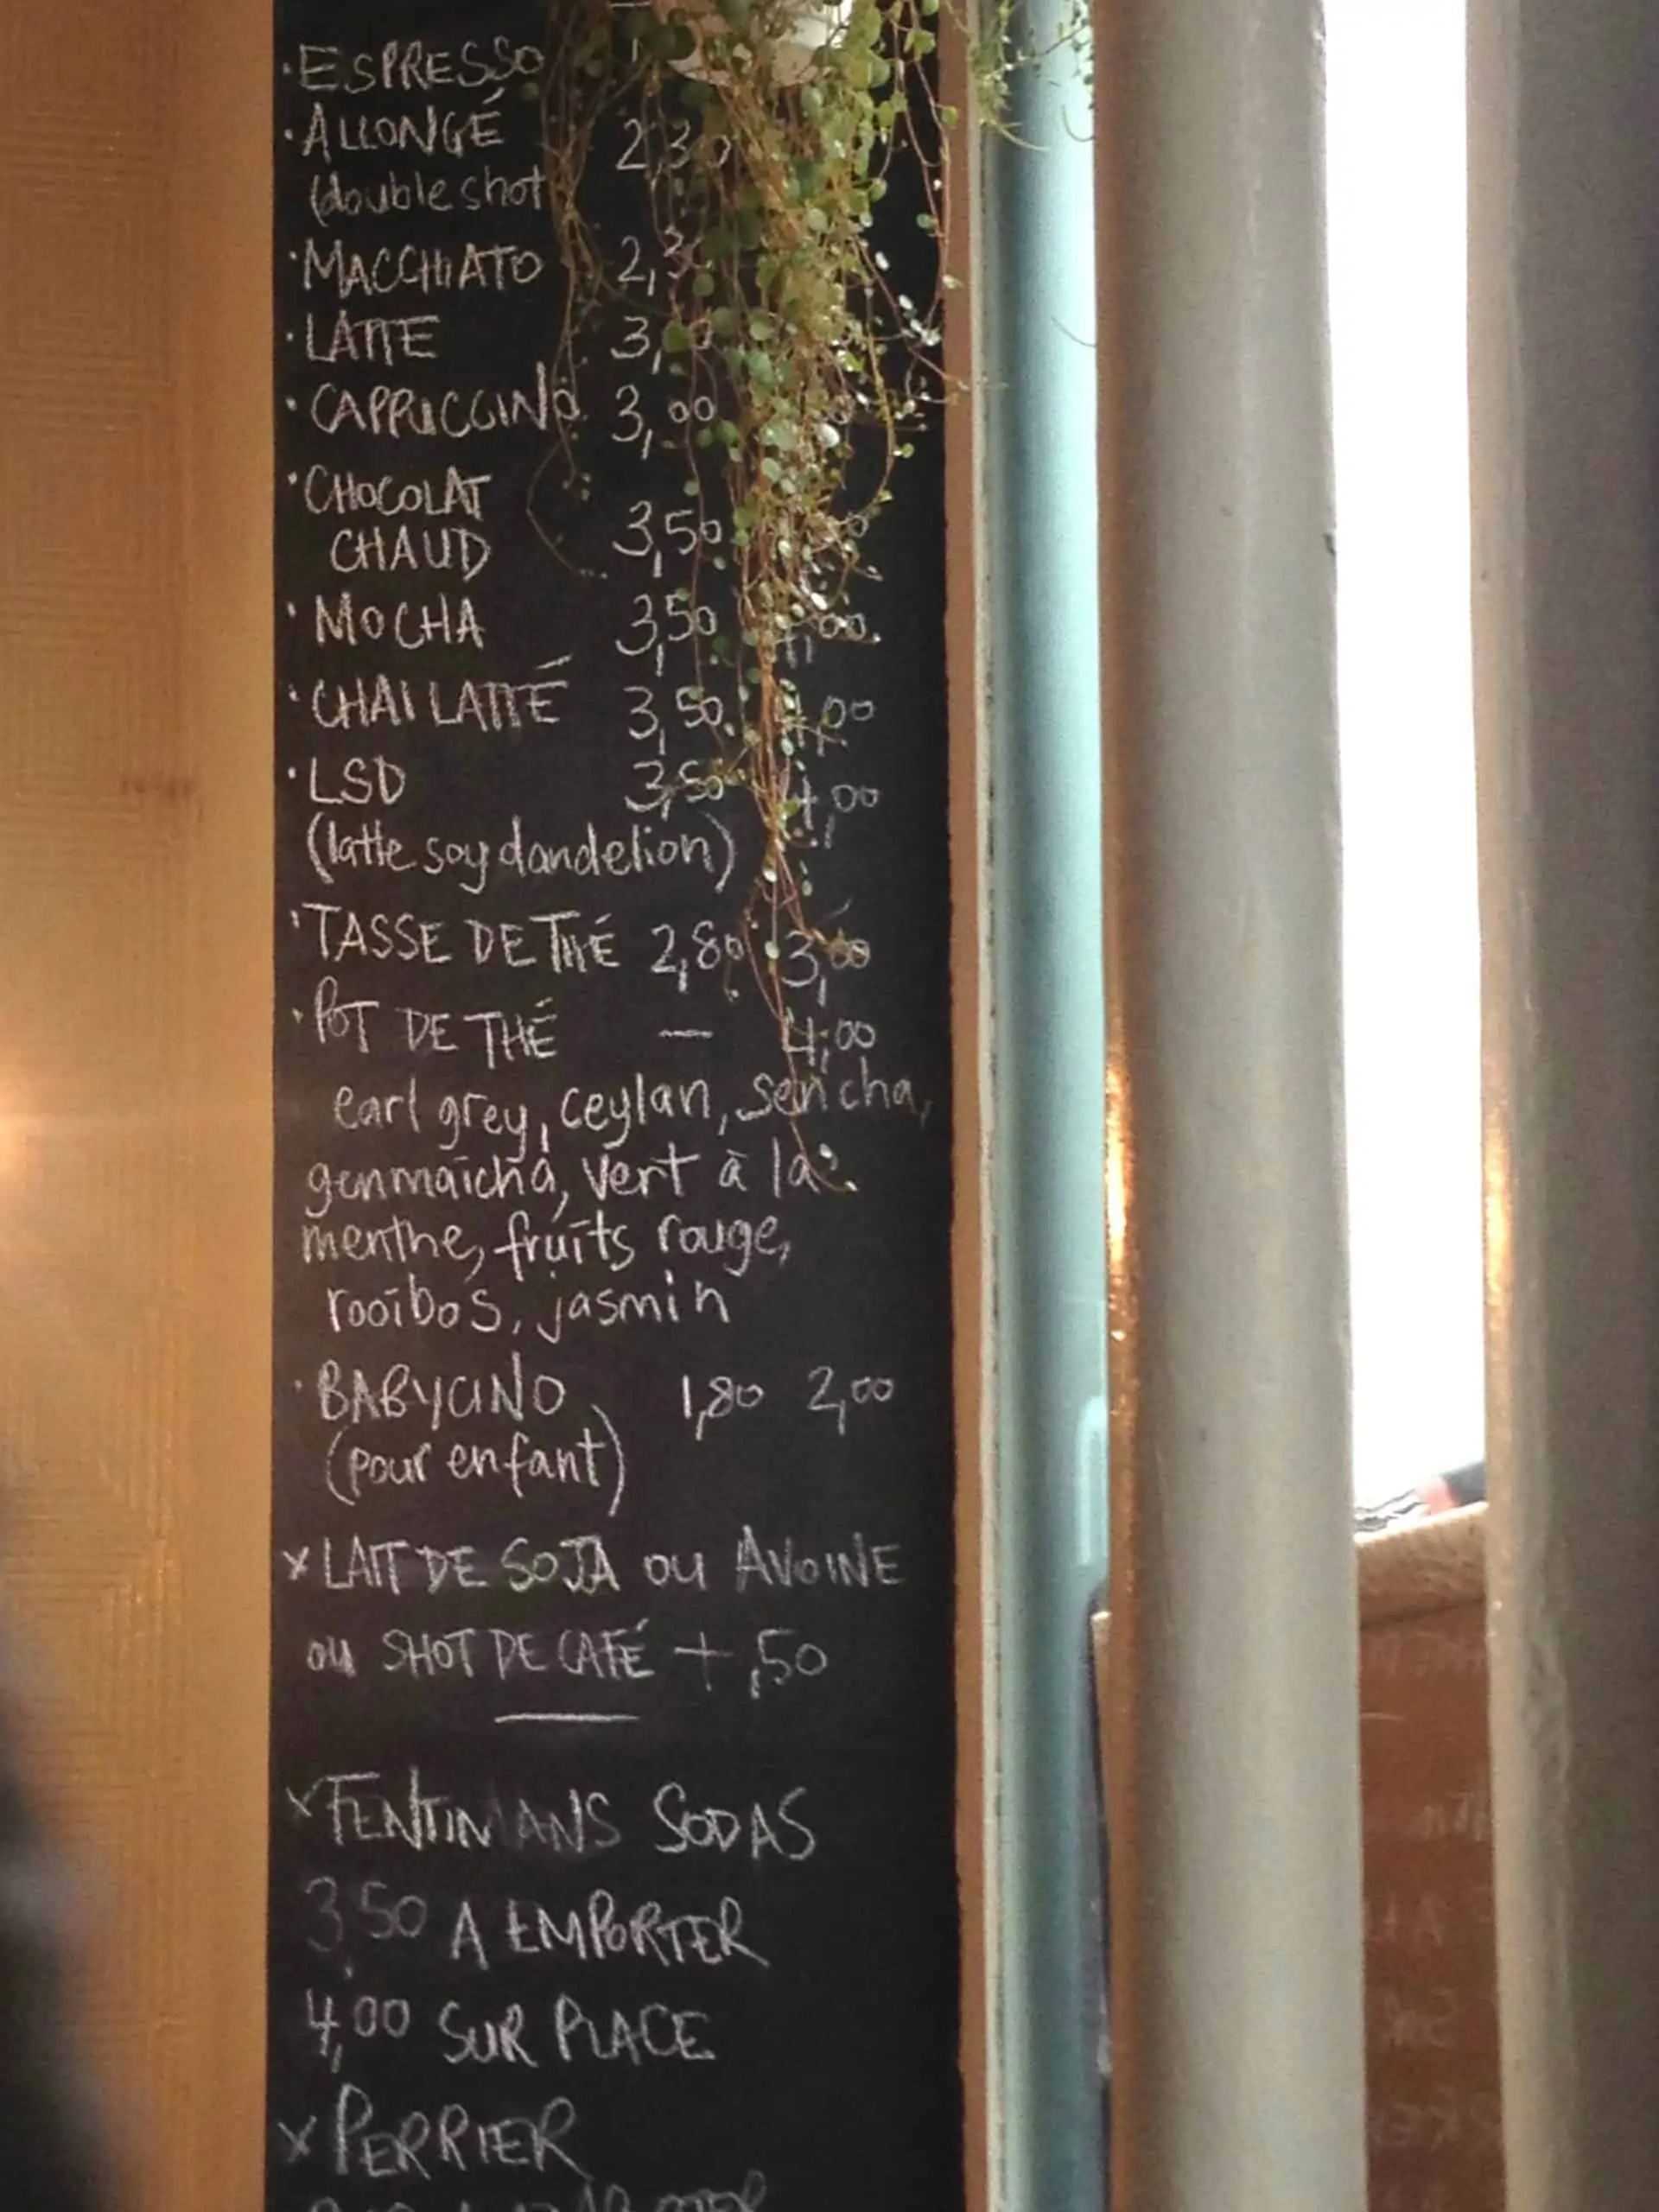 · ESPRESSO
· ALLONGÉ 2,30
(double shot
· MACCHIATO 2,3
· LATTE 3,
· CAPPUCCINO 3,00
· CHOCOLAT
CHAUD 3,50
· MOCHA 3,50 4,00
· CHAI LATTÉ 3,50 4,00
· LSD 3,50 4,00
(latte soy dandelion)
· TASSE DE THÉ 2,80 3,00
· POT DE THÉ — 4,00
earl grey, ceylan, sencha,
genmaïcha, vert à la
menthe, fruits rouge,
rooïbos, jasmin
· BABYCINO 1,80 2,00
(pour enfant)
x LAIT DE SOJA ou AVOINE
ou SHOT DE CAFÉ + ,50
x FENTIMANS SODAS
3,50 A EMPORTER
4,00 SUR PLACE
x PERRIER